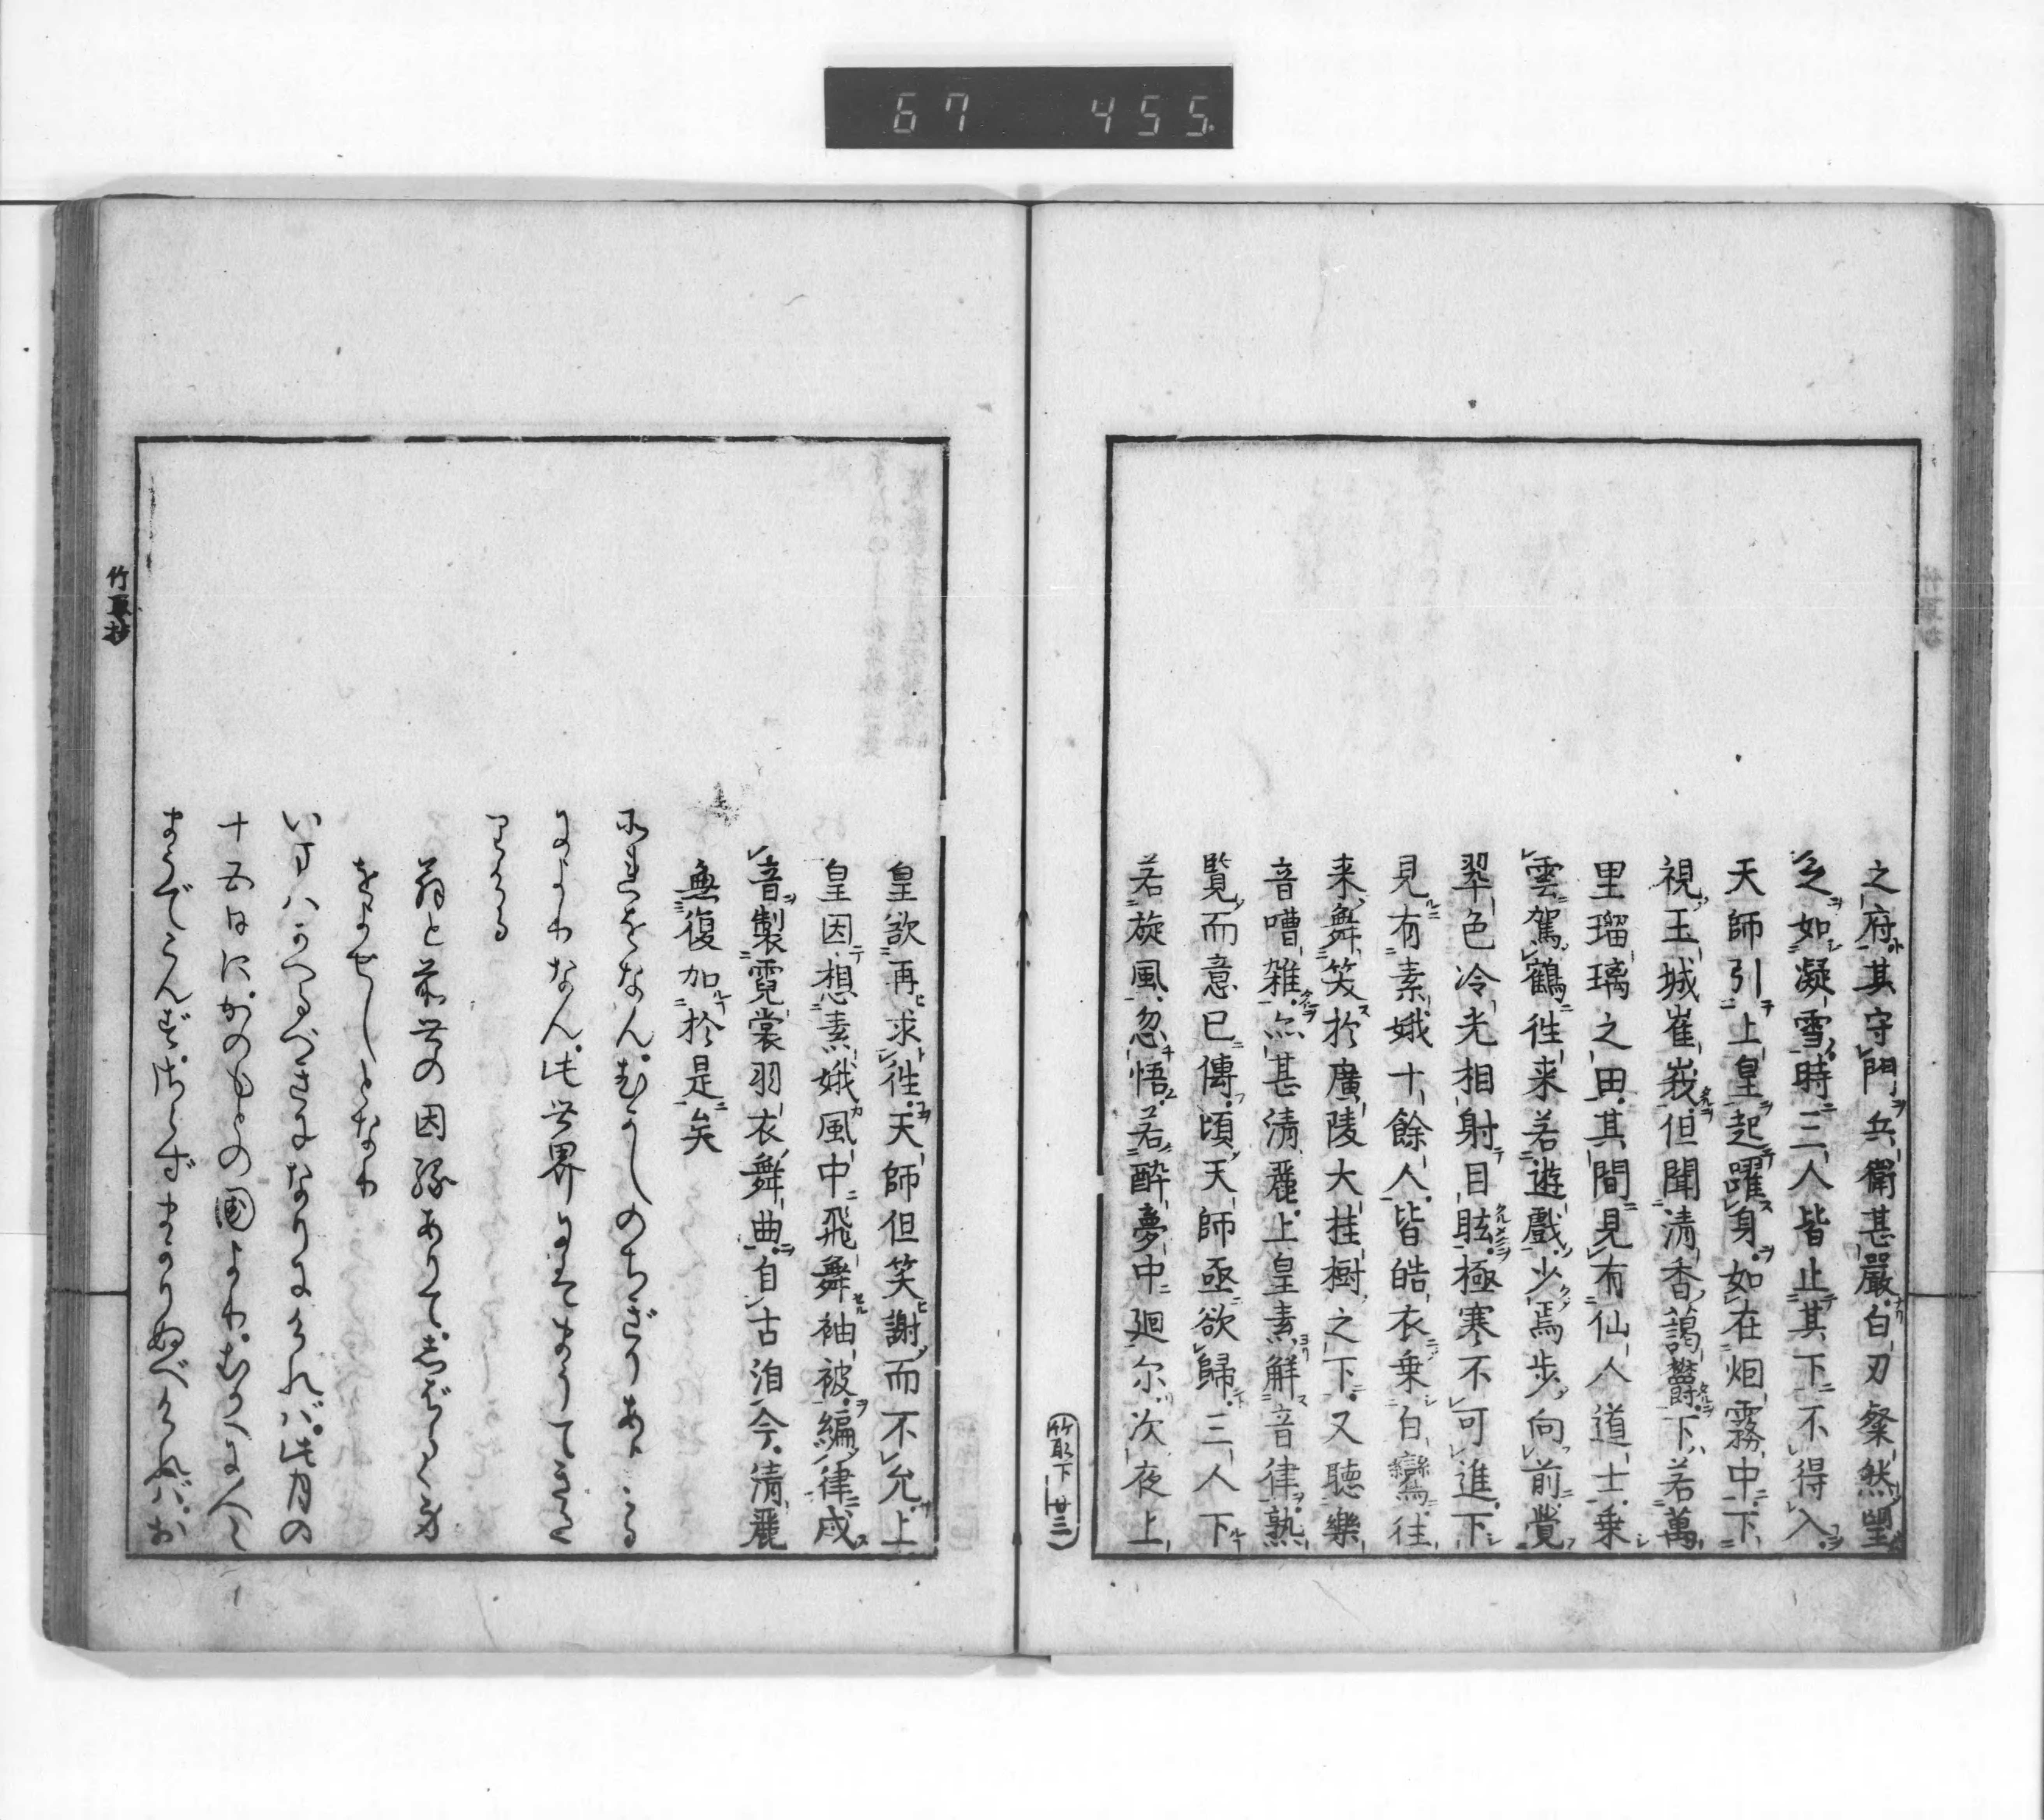 67 455
之府其守門兵衛甚嚴白刃粲然望
之如凝雪時三人皆止其下不得入
天師引上皇起躍身如在烟霧中下
視玉城崔峩但聞清香藹欝下若萬
里瑠璃之田其間見有仙人道士乗
雲駕鶴徃来若遊戲少焉步向前覺
翠色冷光相射目眩極寒不可進下
見有素娥十餘人皆皓衣乗白鸞往
来舞笑於廣陵大桂樹之下又聴樂
音嘈雜亦甚清麗上皇素解音律熟
覧而意已傳頃天師亟欲歸三人下
若旋風忽悟若醉夢中廻尓次夜上
竹取下 廿三
皇欲再求徃天師但笑謝而不允上
皇因想素娥風中飛舞袖被編律成
音製霓裳羽衣舞曲自古洎今清麗
無復加於是矣
それをなんむかしのちぎりありける
によりなん此世界にはまうてきた
りける
前世の因縁ありてしばらく身
をよせしとなり
いまハかへるべきになりにけれバ此月の
十五日にかのもとの国よりむかへに人〻
まうでこんずさらずまかりぬべけれバお
竹取抄